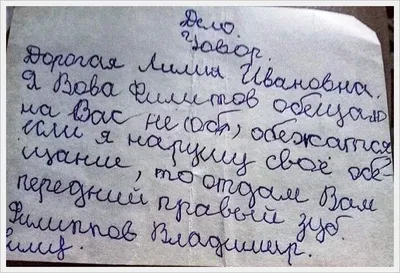 Дело.
Уовор.
Дорогая Лилия Ивановна.
Я Вова Филипов обещаю
на Вас не (об), обежатся
если я нарушу своё обе
щание, то отдам Вам
передний правый зуб.
Филиппов Владимир.